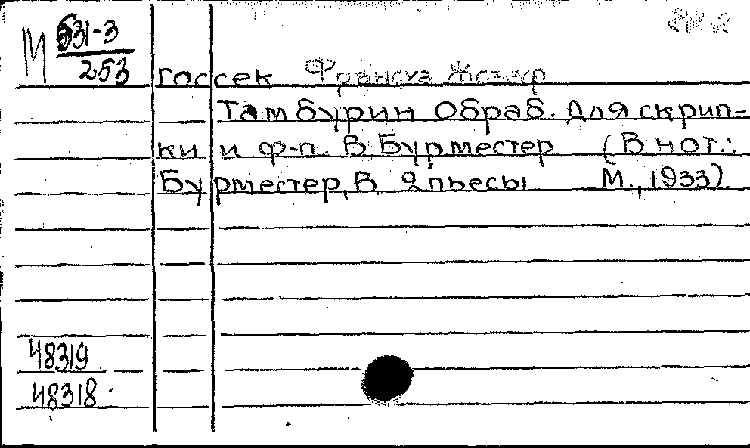 М 531-3
253
Госсек Франсуа Жозеф
Тамбурин Обраб. для скрип-
ки и ф-п. В. Бурместер (В нот.:
Бурместер, В. 2 пьесы М., 1933)
48319
48318